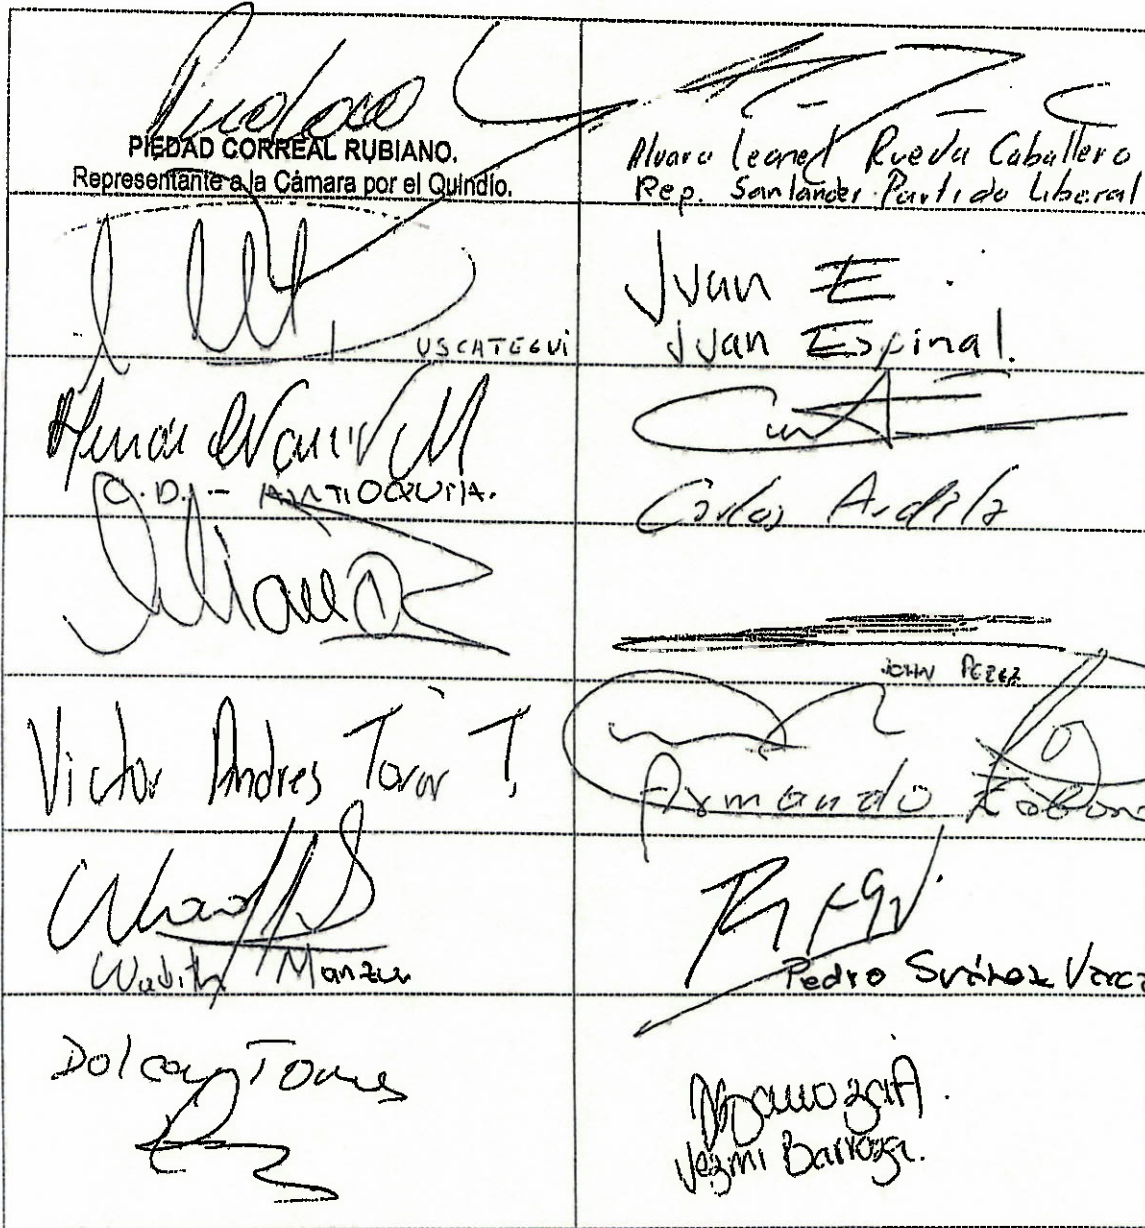 PIEDAD CORREAL RUBIANO.
Representante a la Cámara por el Quindío.
Alvaro Leonel Rueda Caballero
Rep. Santander Partido Liberal
USCATEGUI
Juan E.
Juan Espinal.
C.D. - ANTIOQUIA.
Carlos Ardila
JOHN PEREZ
Victor Andres Tovar T.
Armando
Wadith Manzur
Pedro Suárez Vaca
Dolcey Torres
Yezmi Barraza.